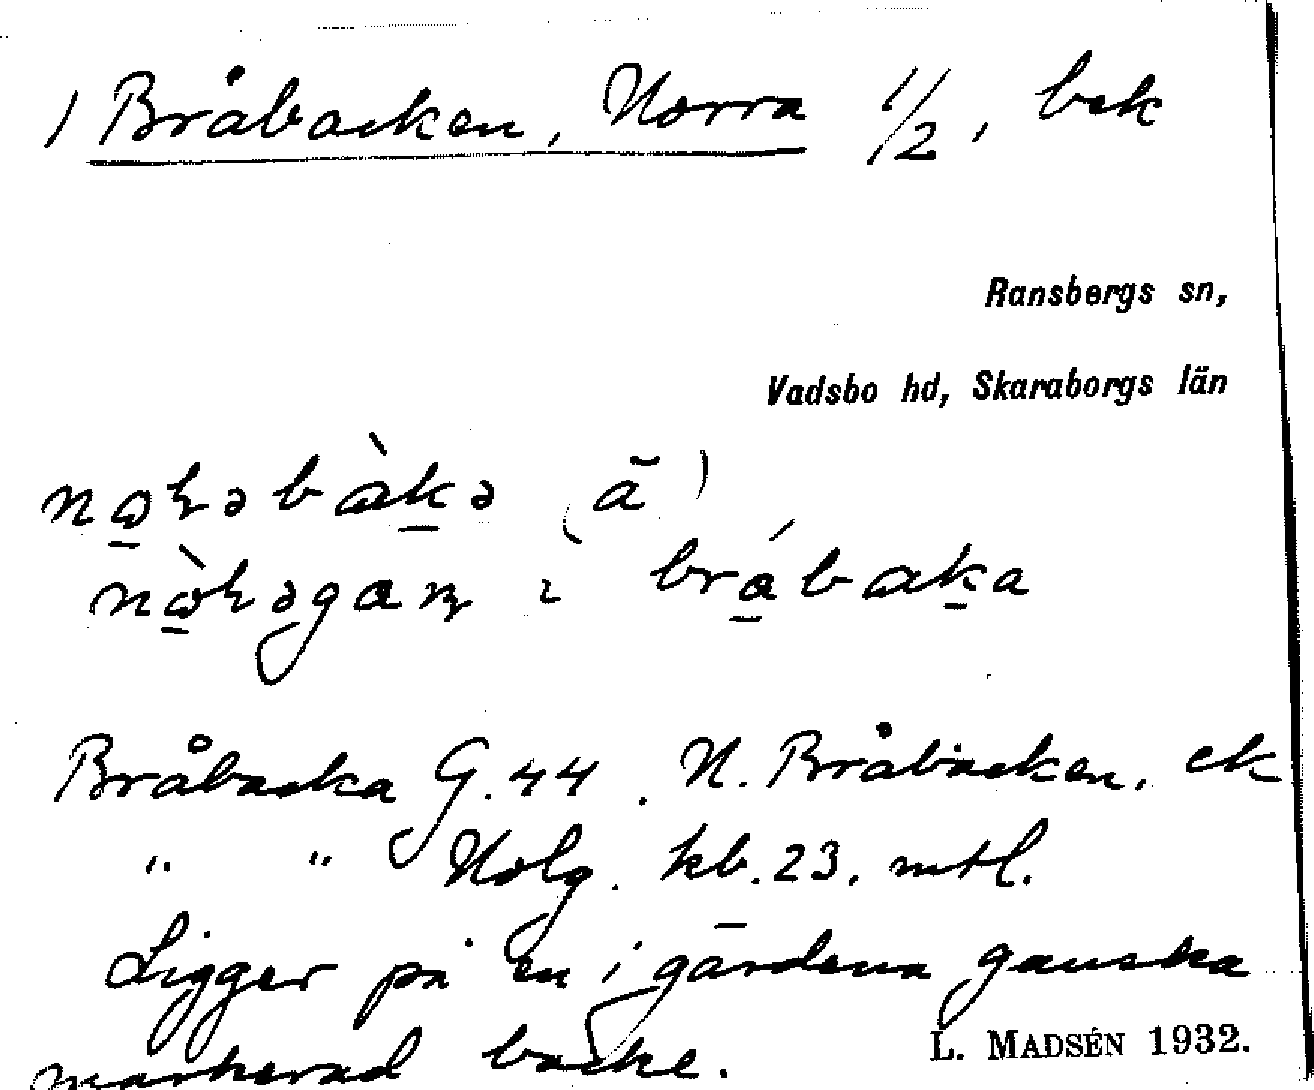 ) Bråbacken, Norra 1/2, bek
Ransbergs sn,
Vadsbo hd, Skaraborgs län
Bråbacka G. 44. N. Bråbacken, ek
" " Holg. kb. 23. mtl.
Ligger på en i gärdena ganska
markerad backe.
L. MADSÉN 1932.